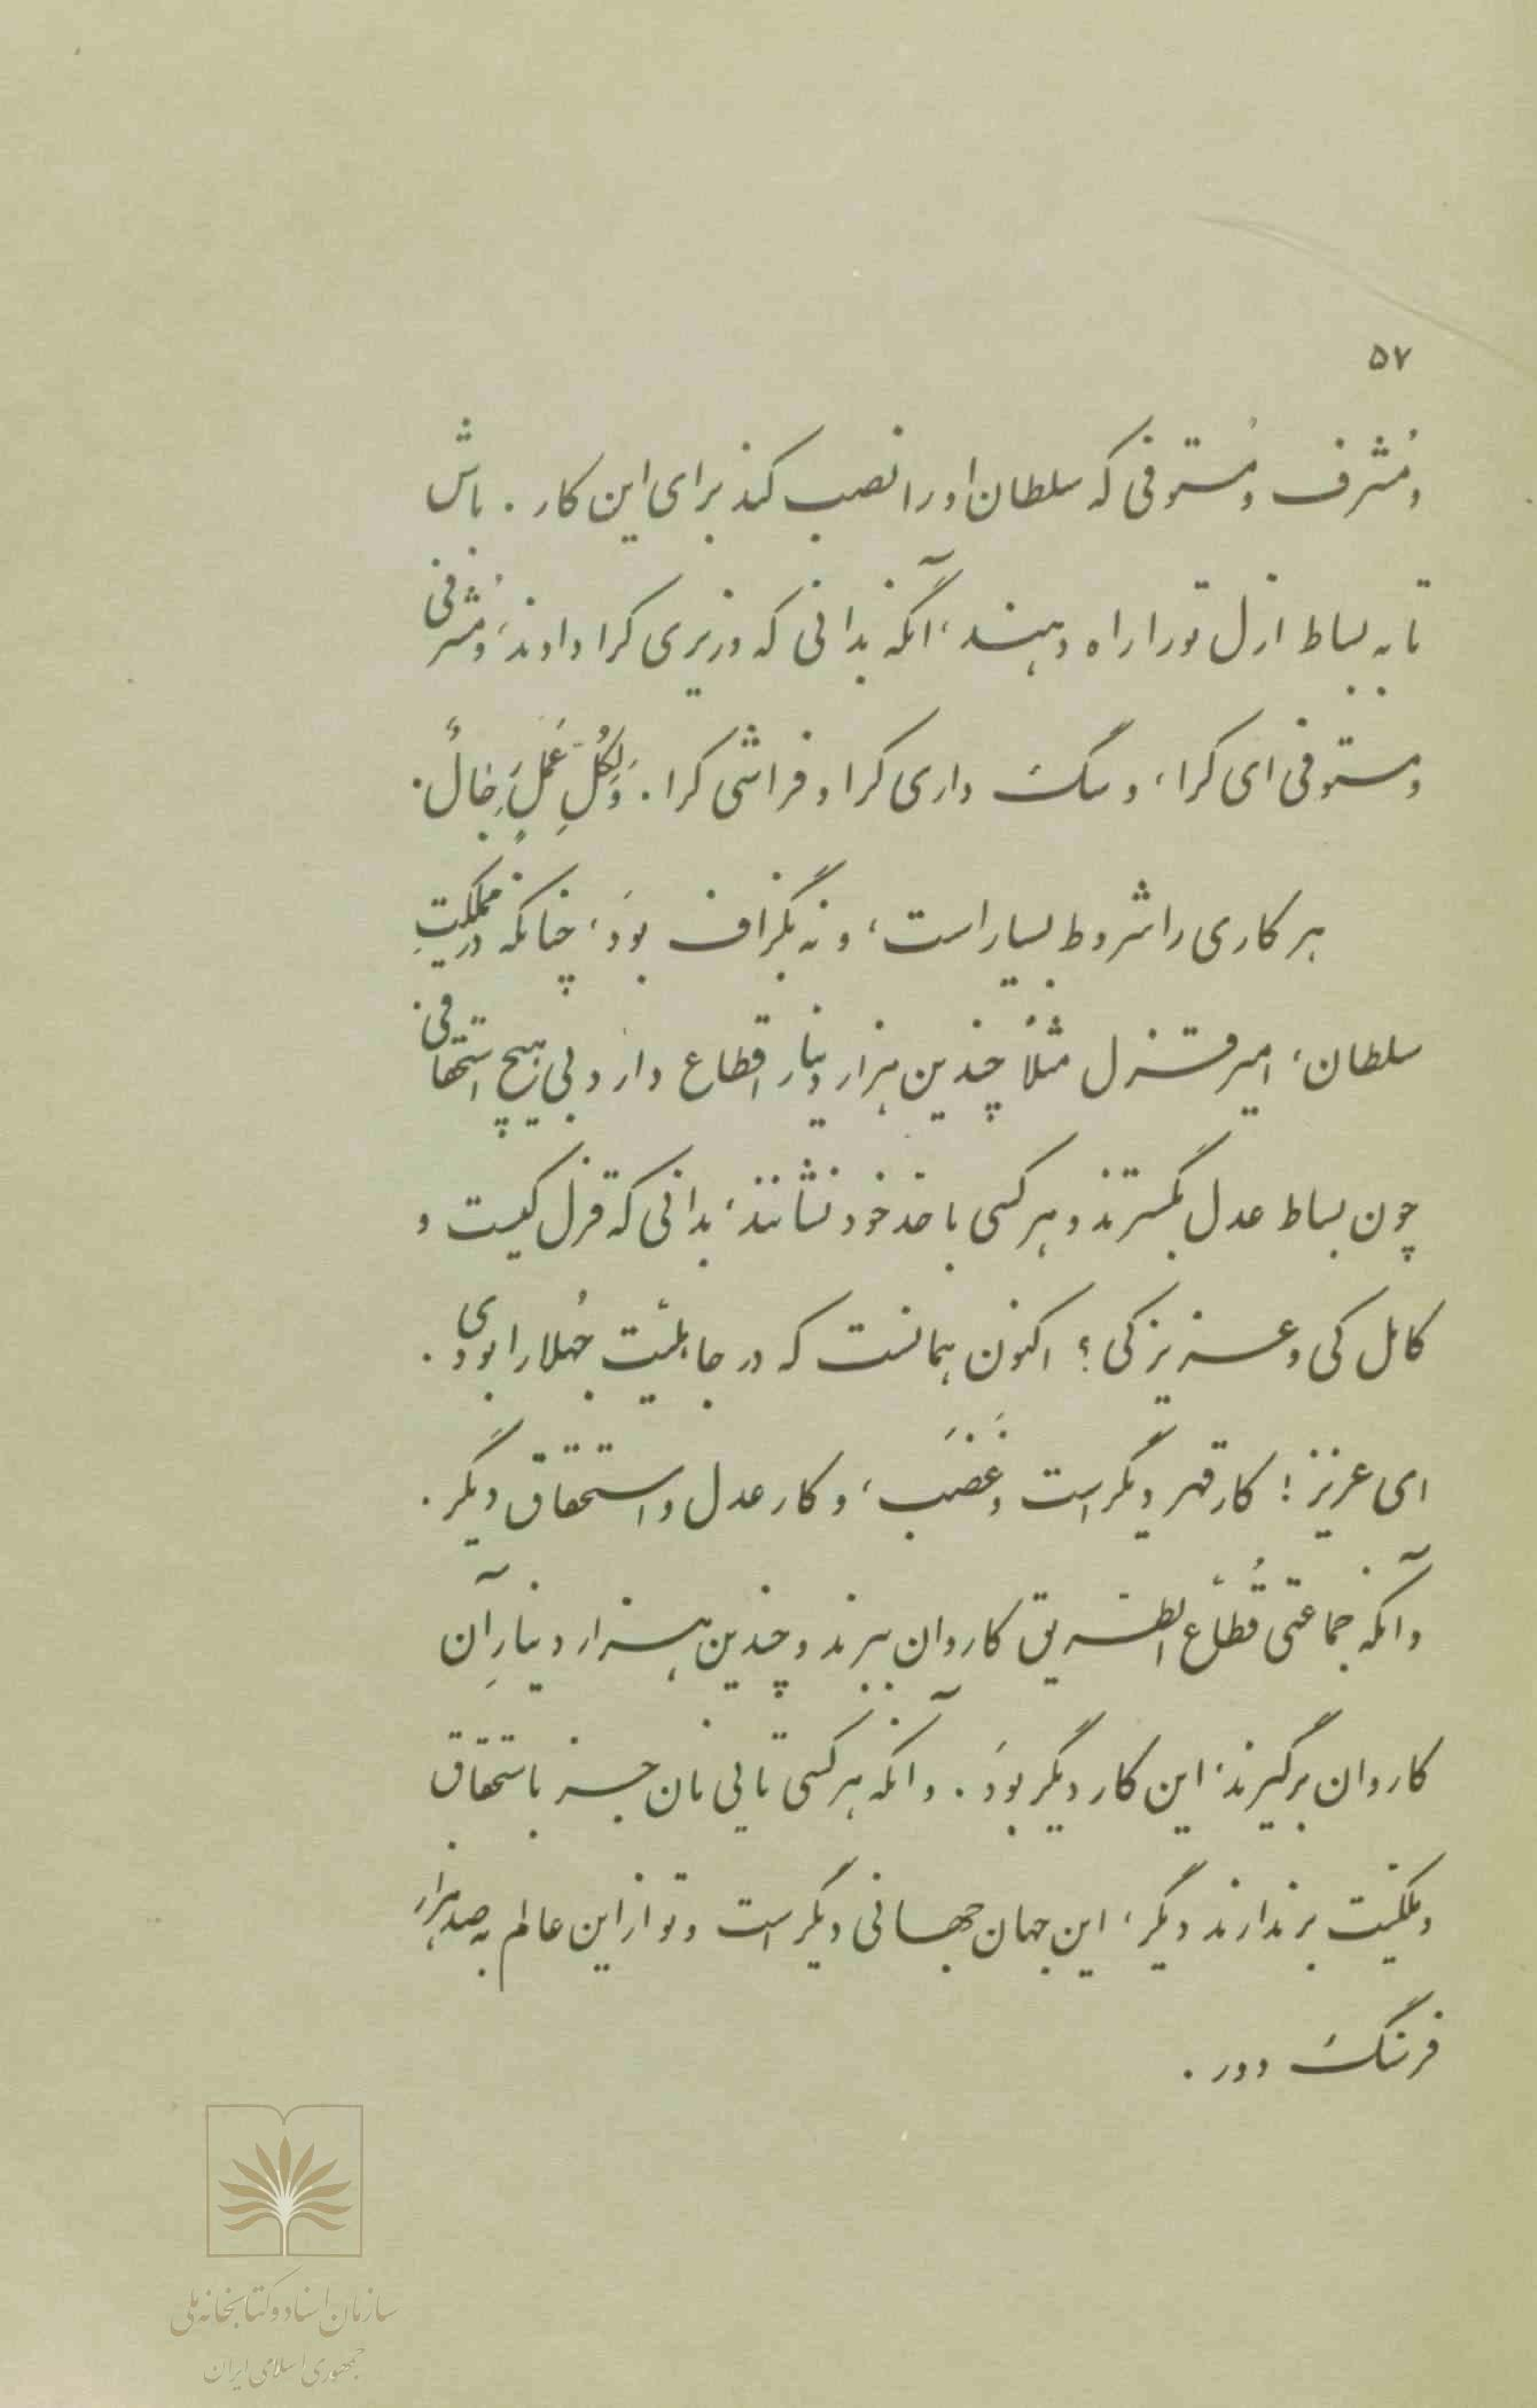 ۵۷
و مُشرف و مُستوفی که سلطان او را نصب کند برای این کار . باش
تا به بساط ازل تو را راه دهند، آنگه بدانی که وزیری کرا دادند، و مُشرفی
و مستوفی ای کرا، و سگ داری کرا و فراشی کرا . وَلِکُلِّ عَمَلٍ رِجالٌ .
هر کاری را شروط بسیار است، و نه بگزاف بوَد، چنانکه در مملکتِ
سلطان، امیر قزل مثلاً چندین هزار دینار اقطاع دارد و بی هیچ استحقاقی
چون بساط عدل بگسترند و هر کسی با حد خود نشانند، بدانی که قزل کیست و
کامل کی و عزیز کی؟ اکنون همانست که در جاهلیّت جُهلا را بودی .
ای عزیز! کار قهر دیگر است و غَضَب، و کار عدل و استحقاق دیگر .
و آنکه جماعتی قُطّاع الطریق کاروان ببرند و چندین هزار دینارِ آن
کاروان برگیرند، این کار دیگر بوَد . و آنکه هر کسی تایی نان جز باستحقاق
و ملکیّت برندارند دیگر، این جهان جهانی دیگر است و تو از این عالم به صد هزار
فرسنگ دور .
سازمان اسناد و کتابخانه ملی
جمهوری اسلامی ایران